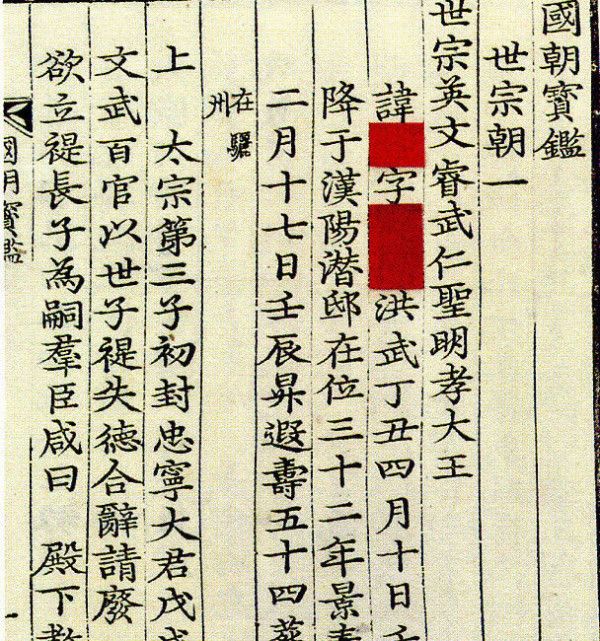 國朝寶鑑
世宗朝一
世宗英文睿武仁聖明孝大王
諱 字 洪武丁丑四月十日
降于漢陽潜邸在位三十二年景
二月十七日壬辰昇遐壽五十四葬
在驪
州
上 太宗第三子初封忠寧大君戊
文武百官以世子禔失德合辭請廢
欲立禔長子為嗣羣臣咸曰 殿下教
國朝寶鑑